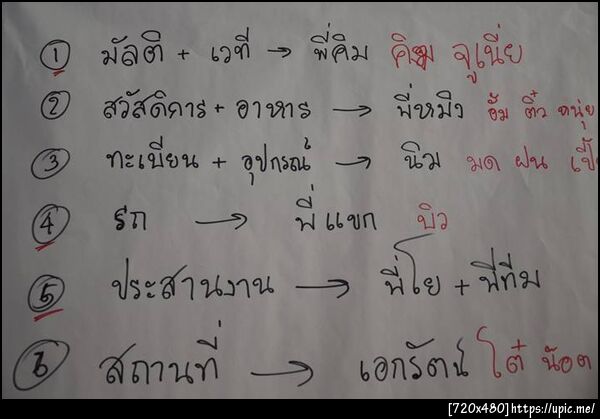 ① มัลติ + เวที → พี่คิม คิม จูเนี่ย
② สวัสดิการ + อาหาร → พี่หมึง อั้ม ติ๋ว หนุ่ย
③ ทะเบียน + อุปกรณ์ → นิม มด ฝน
④ รถ → พี่แขก บิว
⑤ ประสานงาน → พี่โย + พี่ทีม
⑥ สถานที่ → เอกรัตน์ โต๋ น้อต
[720x480]https://upic.me/